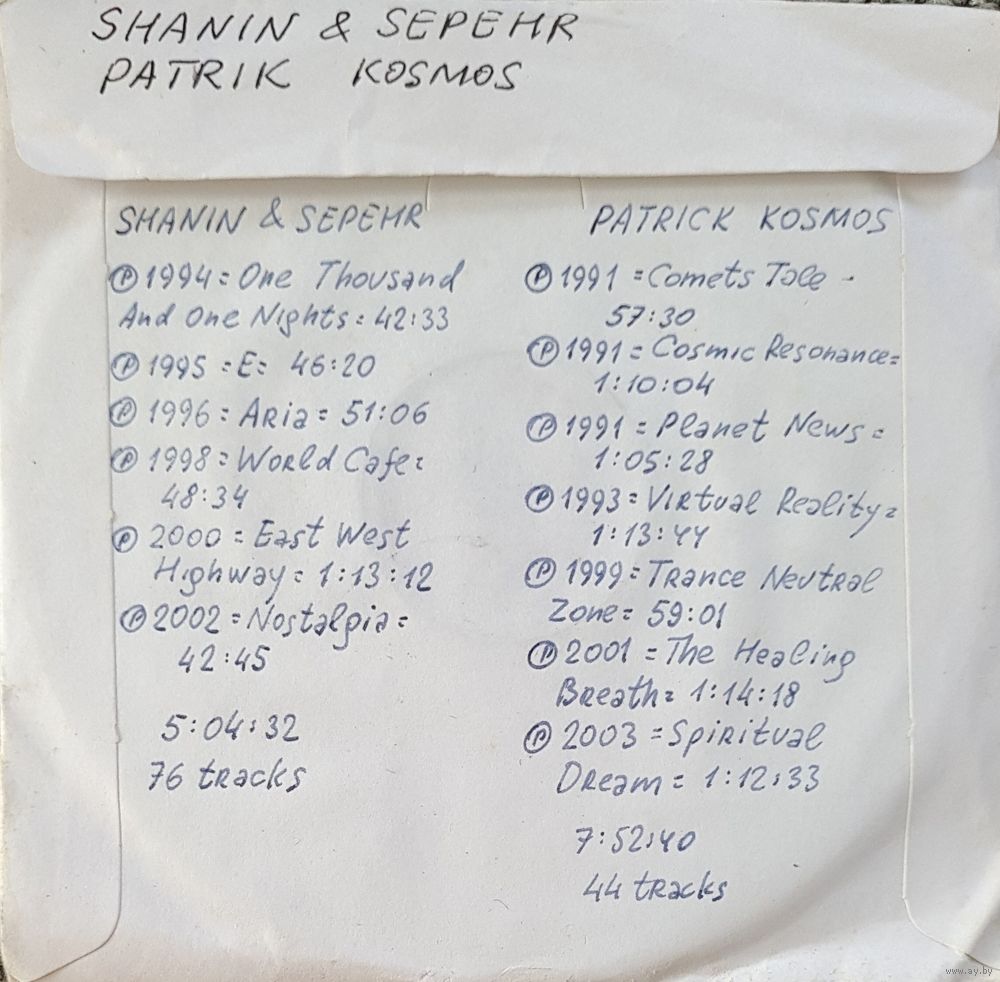 SHANIN & SEPEHR
PATRIK KOSMOS
SHANIN & SEPEHR
℗ 1994 = One Thousand
And One Nights = 42:33
℗ 1995 = E = 46:20
℗ 1996 = Aria = 51:06
℗ 1998 = World Cafe =
48:34
℗ 2000 = East West
Highway = 1:13:12
℗ 2002 = Nostalgia =
42:45
5:04:32
76 tracks
PATRICK KOSMOS
℗ 1991 = Comets Tale -
57:30
℗ 1991 = Cosmic Resonance =
1:10:04
℗ 1991 = Planet News =
1:05:28
℗ 1993 = Virtual Reality =
1:13:44
℗ 1999 = Trance Neutral
Zone = 59:01
℗ 2001 = The Healing
Breath = 1:14:18
℗ 2003 = Spiritual
Dream = 1:12:33
7:52:40
44 tracks
www.ay.by